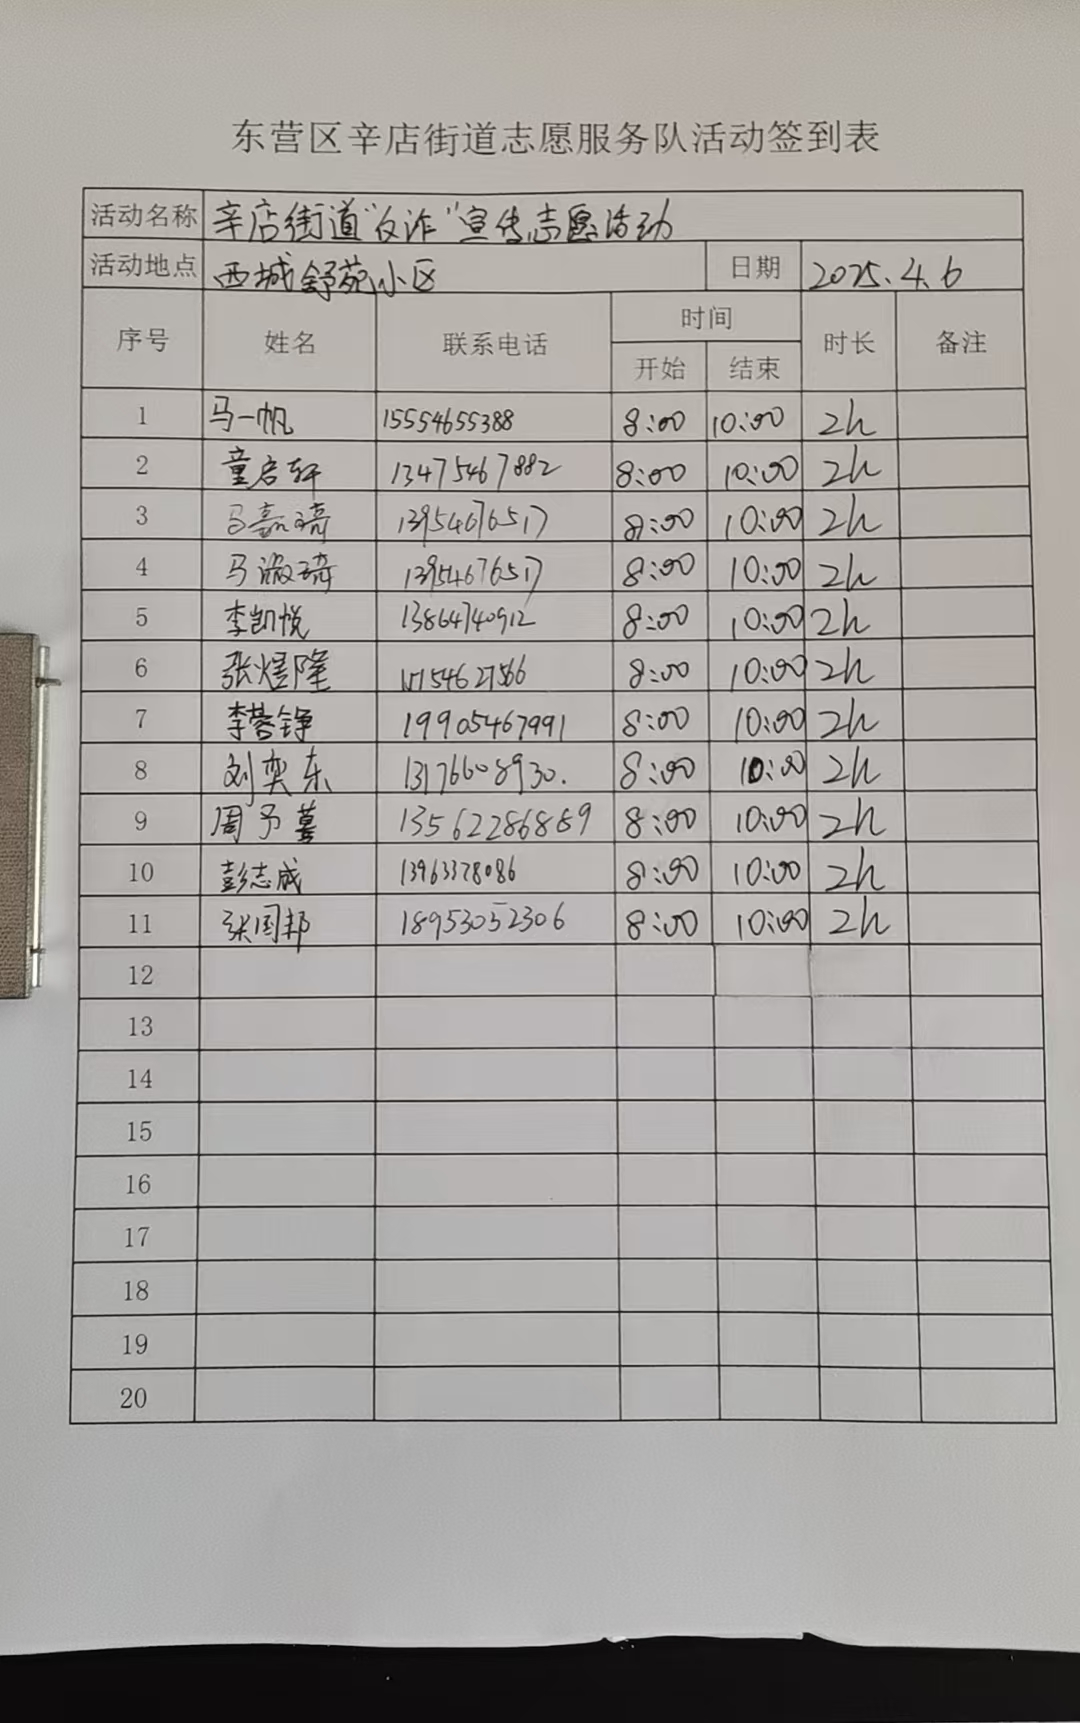 东营区辛店街道志愿服务队活动签到表
活动名称 辛店街道"反诈"宣传志愿活动
活动地点 西城舒苑小区 日期 2025.4.6
序号 姓名 联系电话 时间 时长 备注
开始 结束
1 马一帆 15554655388 8:00 10:00 2h
2 童启轩 13475467882 8:00 10:00 2h
3 马嘉琦 13954676517 8:00 10:00 2h
4 马淑琦 13954676517 8:00 10:00 2h
5 李凯悦 13864740912 8:00 10:00 2h
6 张煜隆 15154627566 8:00 10:00 2h
7 李蓉铮 19905467991 8:00 10:00 2h
8 刘奕东 13176608930. 8:00 10:00 2h
9 周予 13562286889 8:00 10:00 2h
10 彭志成 13963378086 8:00 10:00 2h
11 张国邦 18953052306 8:00 10:00 2h
12
13
14
15
16
17
18
19
20